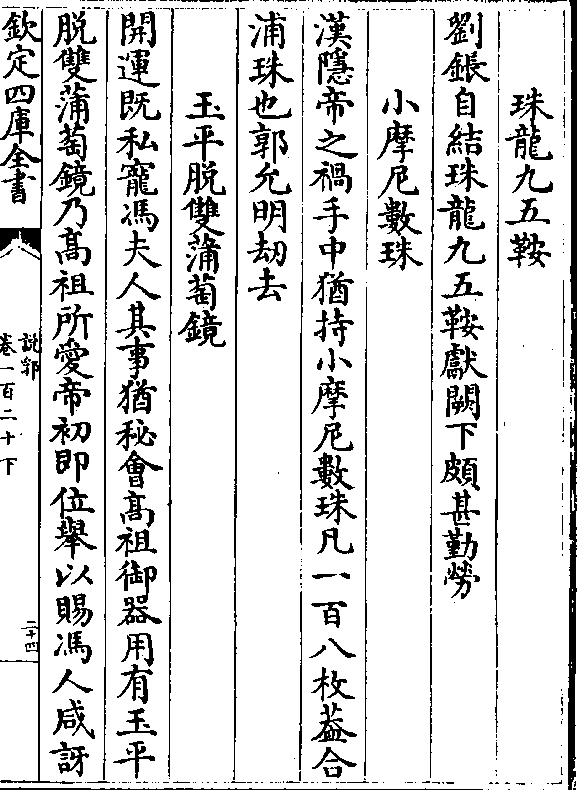 珠龍九五鞍
劉鋹自結珠龍九五鞍獻闕下頗甚勤勞
小摩尼數珠
漢隱帝之禍手中猶持小摩尼數珠凡一百八枚葢合
浦珠也郭允明劫去
玉平脱雙蒲萄鏡
開運既私寵馮夫人其事猶秘會髙祖御器用有玉平
脱雙蒲萄鏡乃髙祖所愛帝初即位舉以賜馮人咸訝
欽定四庫全書
説郛
卷一百二十下
二十四